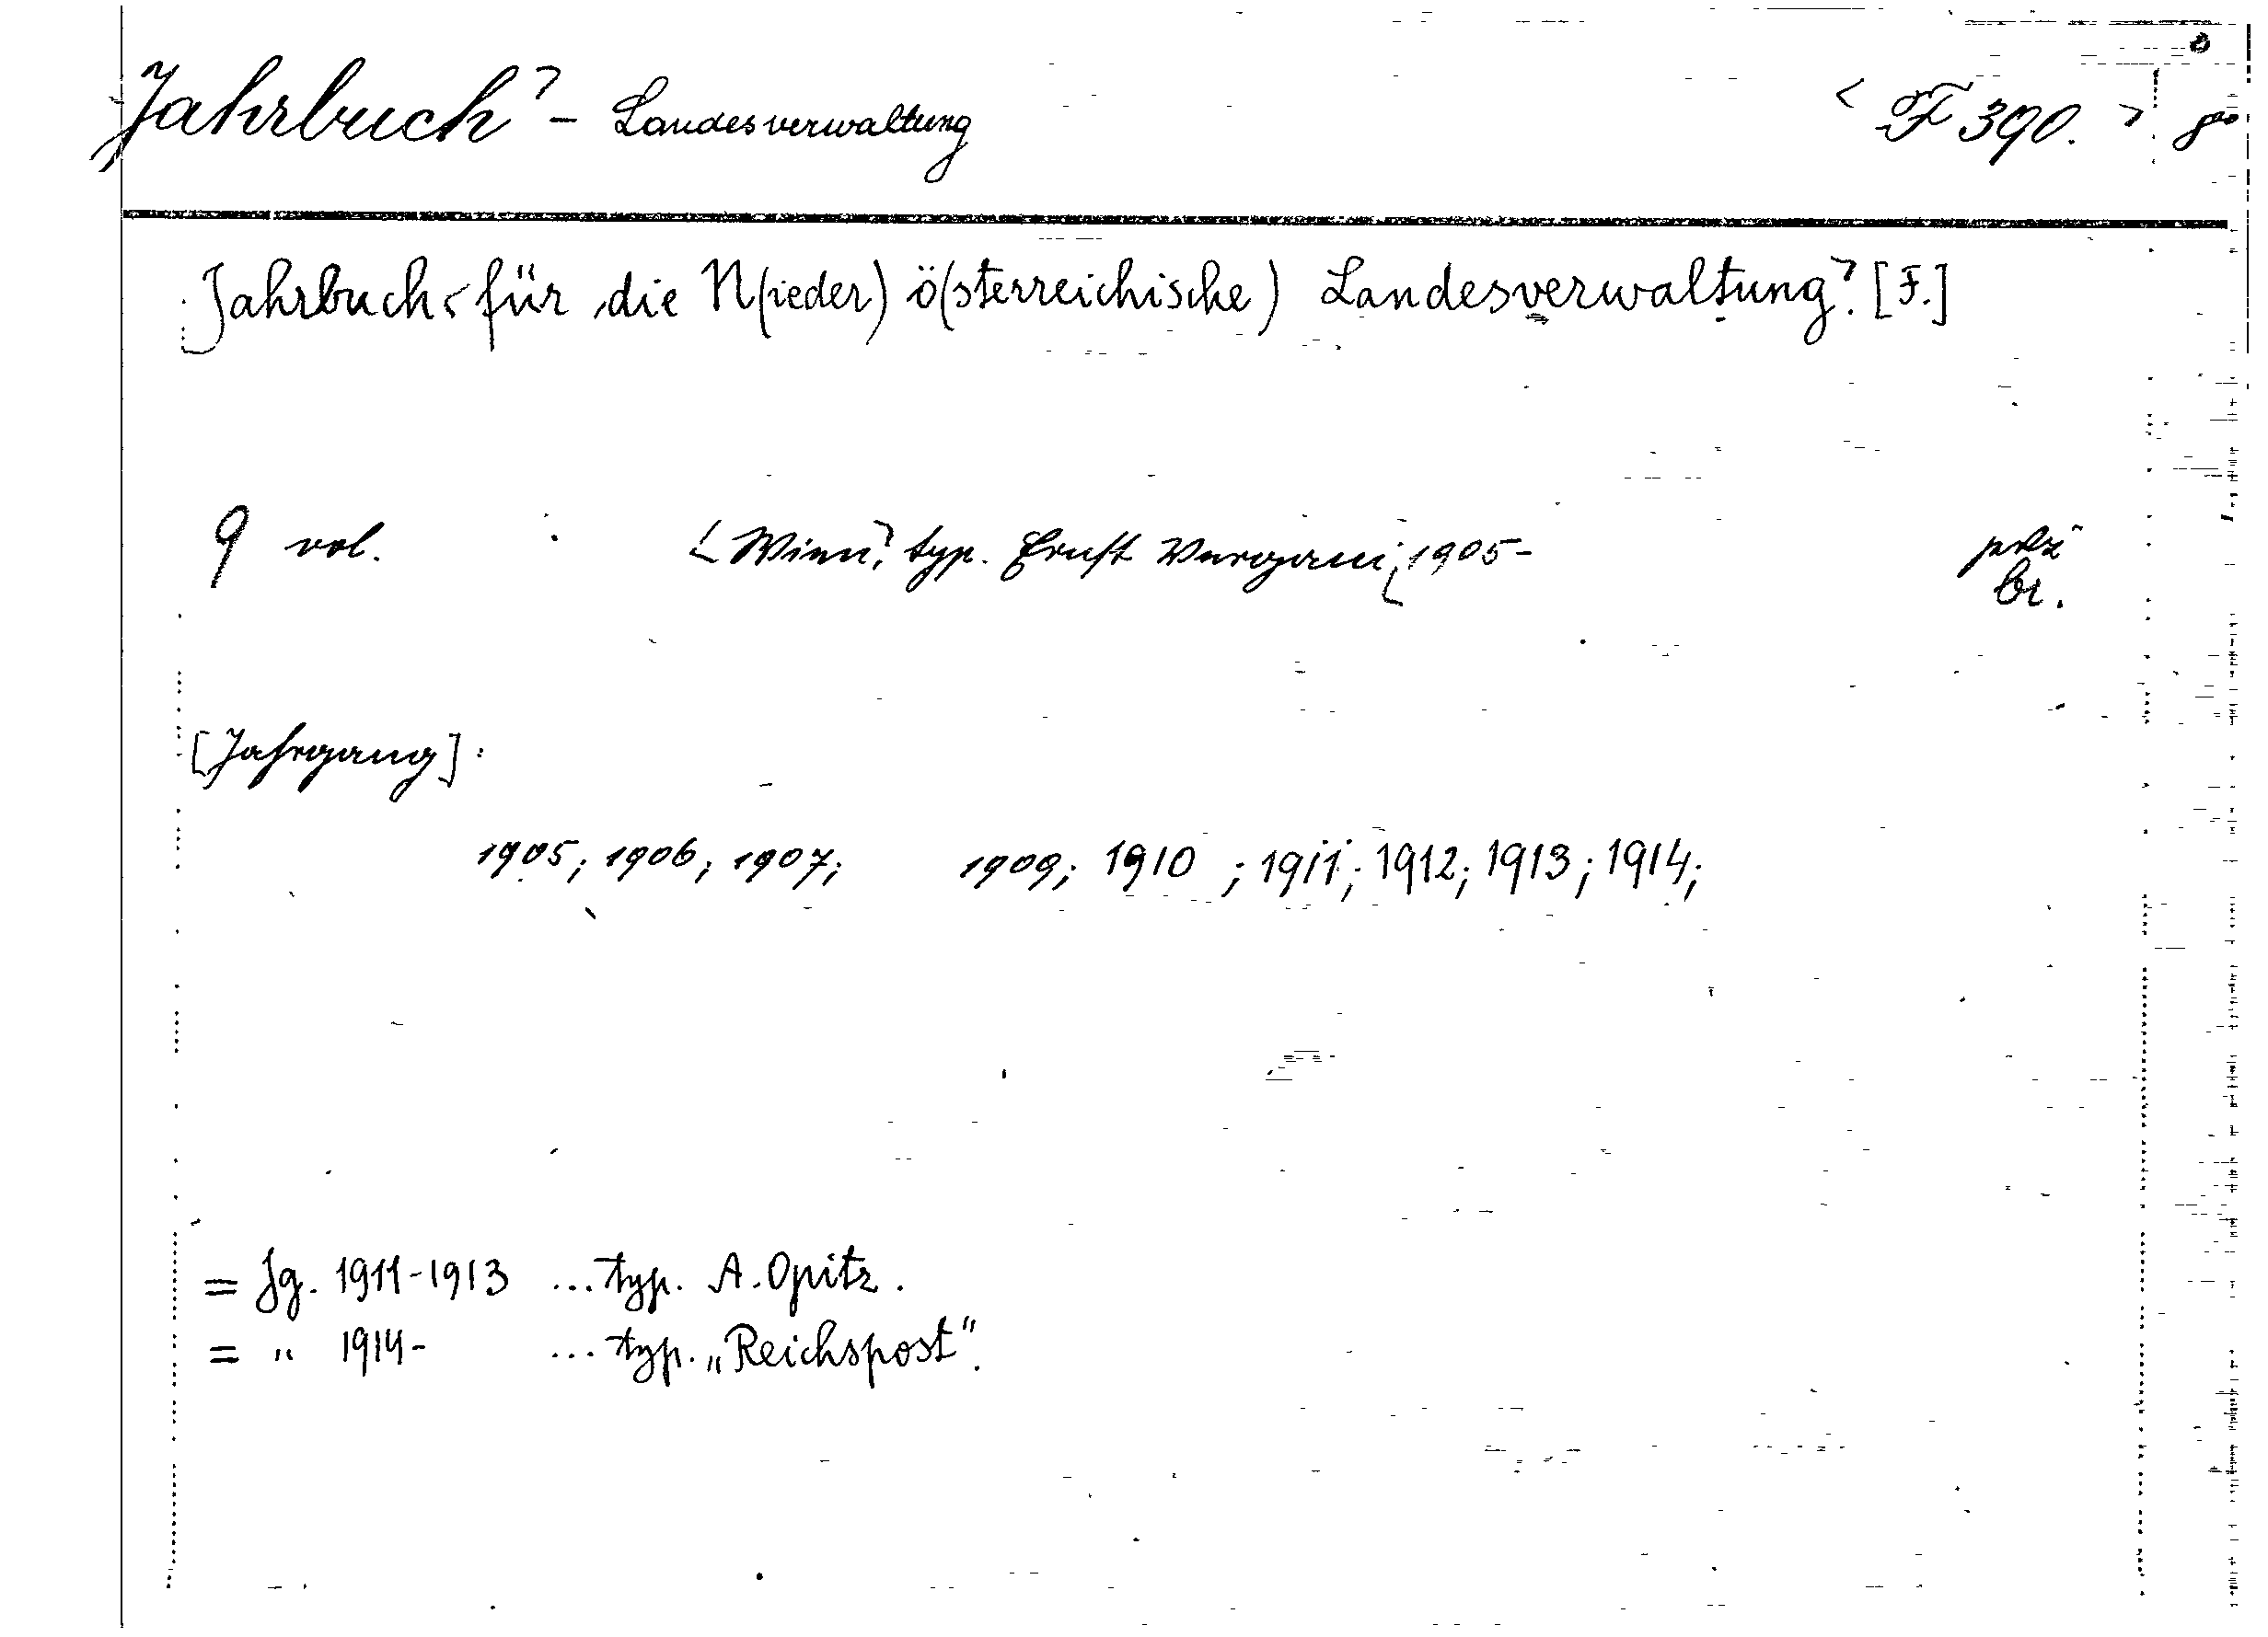 Jahrbuch - Landesverwaltung < F 390. > 8°
Jahrbuch < für die N(ieder) ö(sterreichische) Landesverwaltung>. [F.]
9 vol. [Wien], typ. Ernst Vergani, 1905-
br.
[Jahrgang]:
1905; 1906; 1907; 1909; 1910 ; 1911; 1912; 1913; 1914;
= Jg. 1911-1913 ... typ. A. Opitz.
= " 1914- ... typ. „Reichspost".